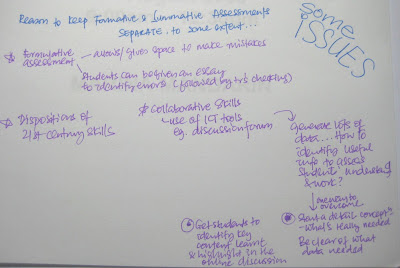 Reason to keep Formative & Summative Assessments
SEPARATE to some extent...
some
ISSUES
* Formulative
assessment
→ allows/gives space to make mistakes
→ students can be given an essay
to identify errors (followed by tr's checking)
* Dispositions of
21st century skills
* Collaborative Skills
- use of ICT tools
eg. discussion forum
Generate lots of
data... How to
identify useful
info to assess
students' understand'g
& work?
one way to
overcome
* Start a detail concept?
- what's really needed
Be clear of what
data needed
* Get students to
identify key
content learnt
& highlight in the
online discussion